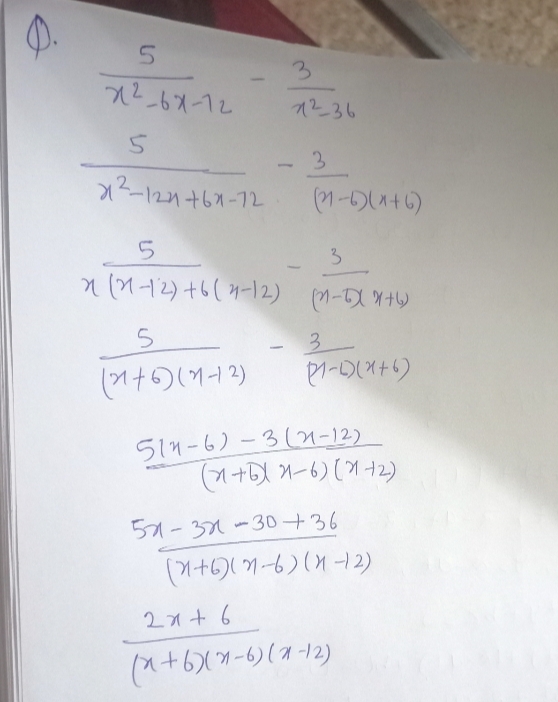 Q.
5/(x²-6x-72) - 3/(x²-36)
5/(x²-12x+6x-72) - 3/((x-6)(x+6))
5/(x(x-12)+6(x-12)) - 3/((x-6)(x+6))
5/((x+6)(x-12)) - 3/((x-6)(x+6))
(5(x-6) - 3(x-12))/((x+6)(x-6)(x-12))
(5x - 3x - 30 + 36)/((x+6)(x-6)(x-12))
(2x + 6)/((x+6)(x-6)(x-12))